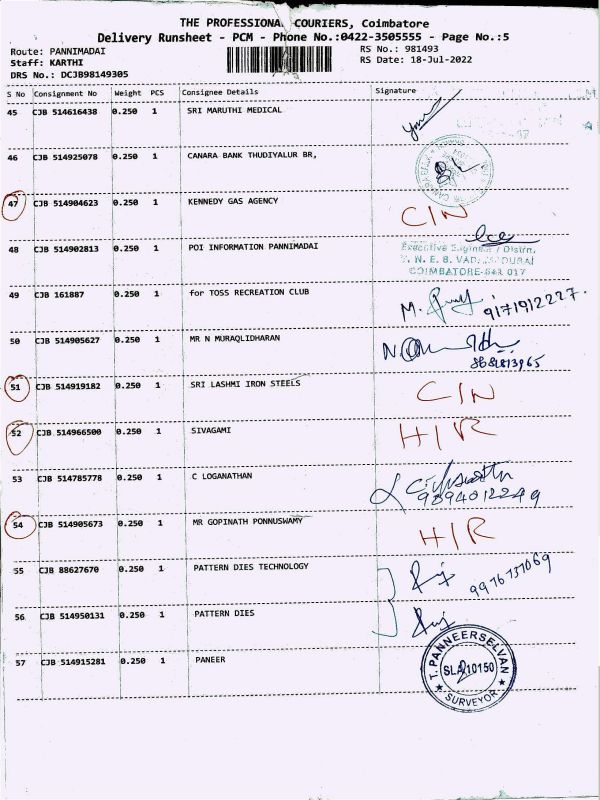 THE PROFESSIONAL COURIERS, Coimbatore
Delivery Runsheet - PCM - Phone No.:0422-3505555 - Page No.:5
Route: PANNIMADAI RS No.: 981493
Staff: KARTHI RS Date: 18-Jul-2022
DRS No.: DCJB98149305
S No Consignment No Weight PCS Consignee Details Signature
45 CJB 514616438 0.250 1 SRI MARUTHI MEDICAL
46 CJB 514925078 0.250 1 CANARA BANK THUDIYALUR BR,
47 CJB 514904623 0.250 1 KENNEDY GAS AGENCY C/N
48 CJB 514902813 0.250 1 POI INFORMATION PANNIMADAI
Executive Engineer / Distn.
T. N. E. B. VADAMADURAI
COIMBATORE-641 017
49 CJB 161887 0.250 1 for TOSS RECREATION CLUB M. 9171912227.
50 CJB 514905627 0.250 1 MR N MURAQLIDHARAN
51 CJB 514919182 0.250 1 SRI LASHMI IRON STEELS C/N
52 CJB 514966500 0.250 1 SIVAGAMI H/R
53 CJB 514785778 0.250 1 C LOGANATHAN
9894012249
54 CJB 514905673 0.250 1 MR GOPINATH PONNUSWAMY H/R
55 CJB 88627670 0.250 1 PATTERN DIES TECHNOLOGY
56 CJB 514950131 0.250 1 PATTERN DIES
57 CJB 514915281 0.250 1 PANEER
T. PANNEERSELVAN
SLA 10150
SURVEYOR